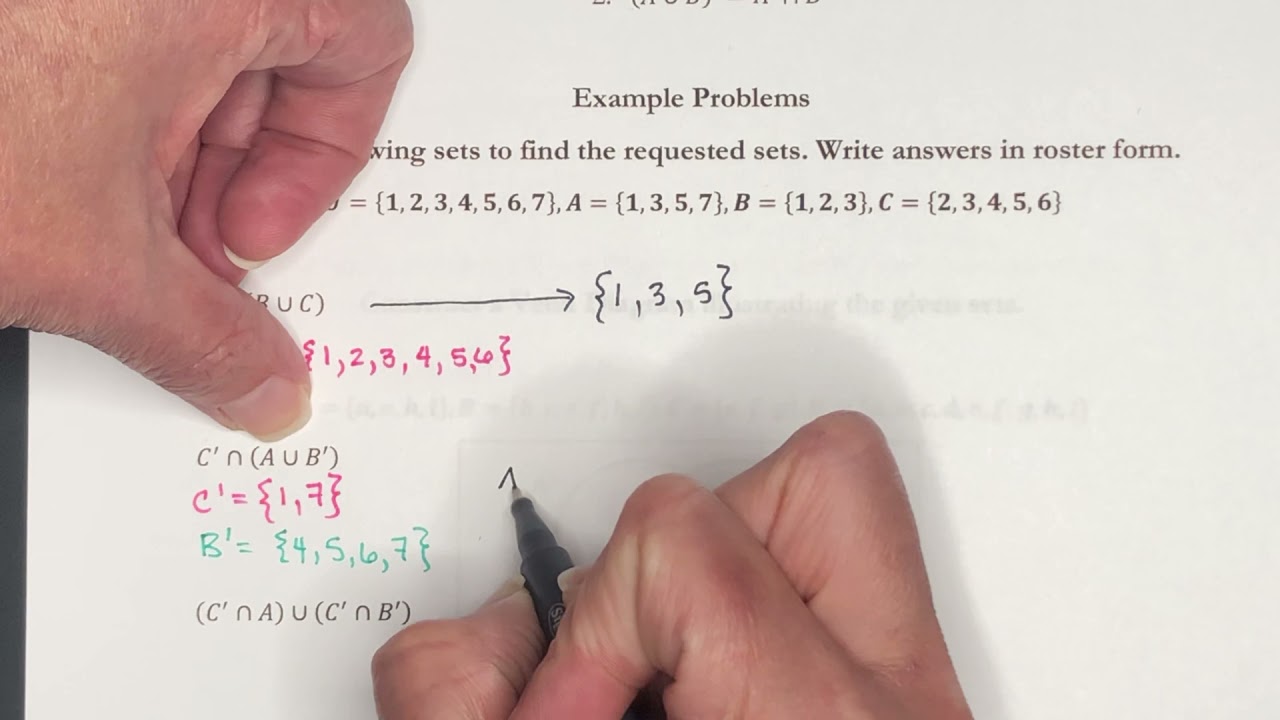 Example Problems
wing sets to find the requested sets. Write answers in roster form.
= {1, 2, 3, 4, 5, 6, 7}, A = {1, 3, 5, 7}, B = {1, 2, 3}, C = {2, 3, 4, 5, 6}
(B ∪ C) ⟶ {1, 3, 5}
{1, 2, 3, 4, 5, 6}
C′ ∩ (A ∪ B′)
C' = {1, 7}
B' = {4, 5, 6, 7}
(C′ ∩ A) ∪ (C′ ∩ B′)